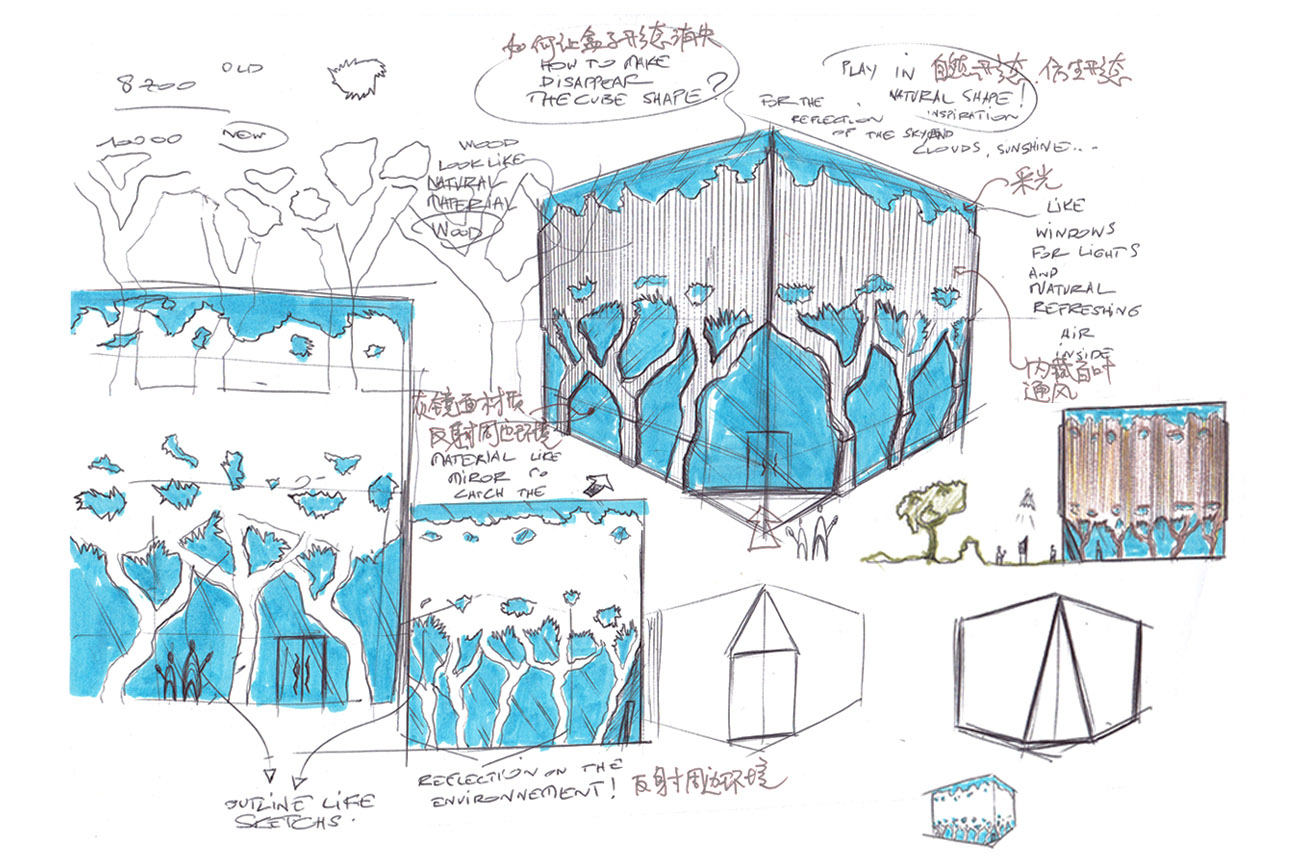 8200
OLD
10000
NEW
如何让盒子形态消失
HOW TO MAKE
DISAPPEAR
THE CUBE SHAPE?
PLAY IN 自然形态 仿生形态
NATURAL SHAPE!
INSPIRATION
FOR THE
REFLECTION
OF THE SKY AND
CLOUDS, SUNSHINE...
WOOD
LOOK LIKE
NATURAL
MATERIAL
WOOD
采光
LIKE
WINDOWS
FOR LIGHTS
AND
NATURAL
REFRESHING
AIR
INSIDE
内藏百叶
通风
镜面材质
反射周边环境
MATERIAL LIKE
MIROR TO
CATCH THE
REFLECTION ON THE
ENVIRONNEMENT! 反射周边环境
OUTLINE LIKE
SKETCHS.